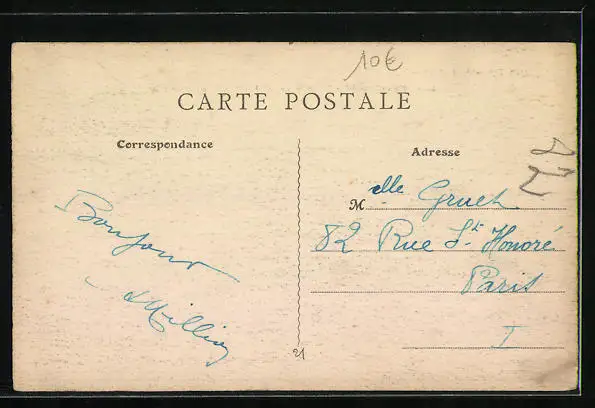 10€
CARTE POSTALE
Correspondance
Adresse
Bonjour
Melle Gruet
82 Rue St Honoré
Paris
I
21